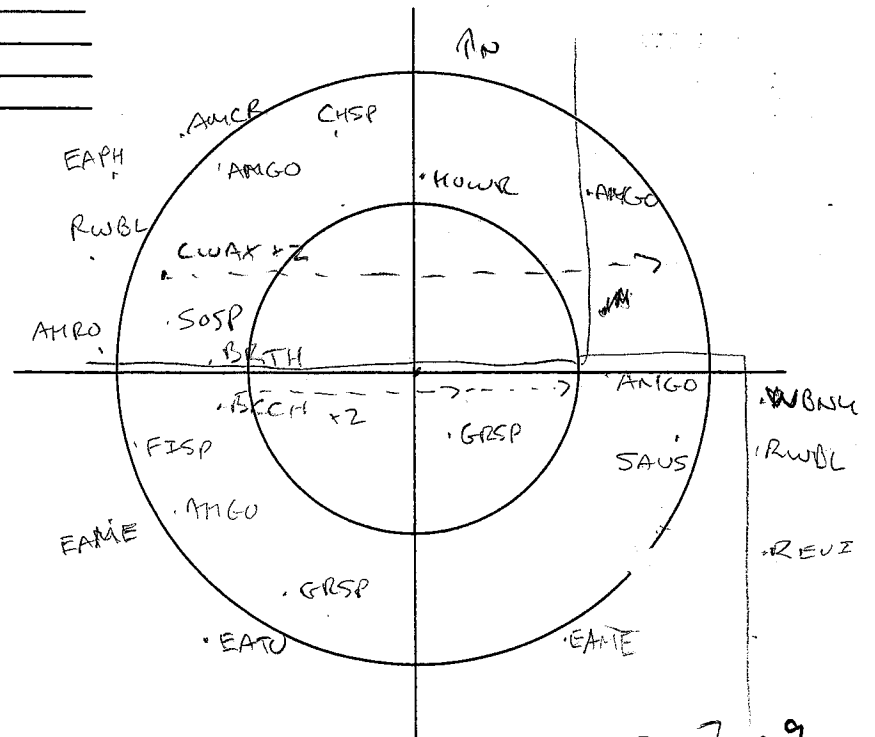 N
AMCR
CHSP
EAPH
AMGO
HOWR
AMGO
RWBL
CWAX +2
SOSP
AMRO
BRTH
AMGO
BCCH +2
WBNU
GRSP
FISP
SAVS
RWBL
AMGO
EAME
REVI
GRSP
EATO
EAME